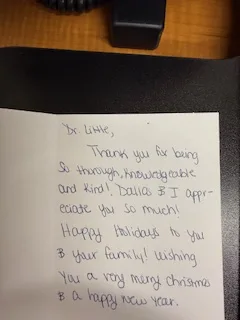 Dr. Little,
Thank you for being
so thorough, knowledgeable
and kind! Dallas & I appr-
eciate you so much!
Happy Holidays to you
& your family! Wishing
you a very merry christmas
& a happy new year.